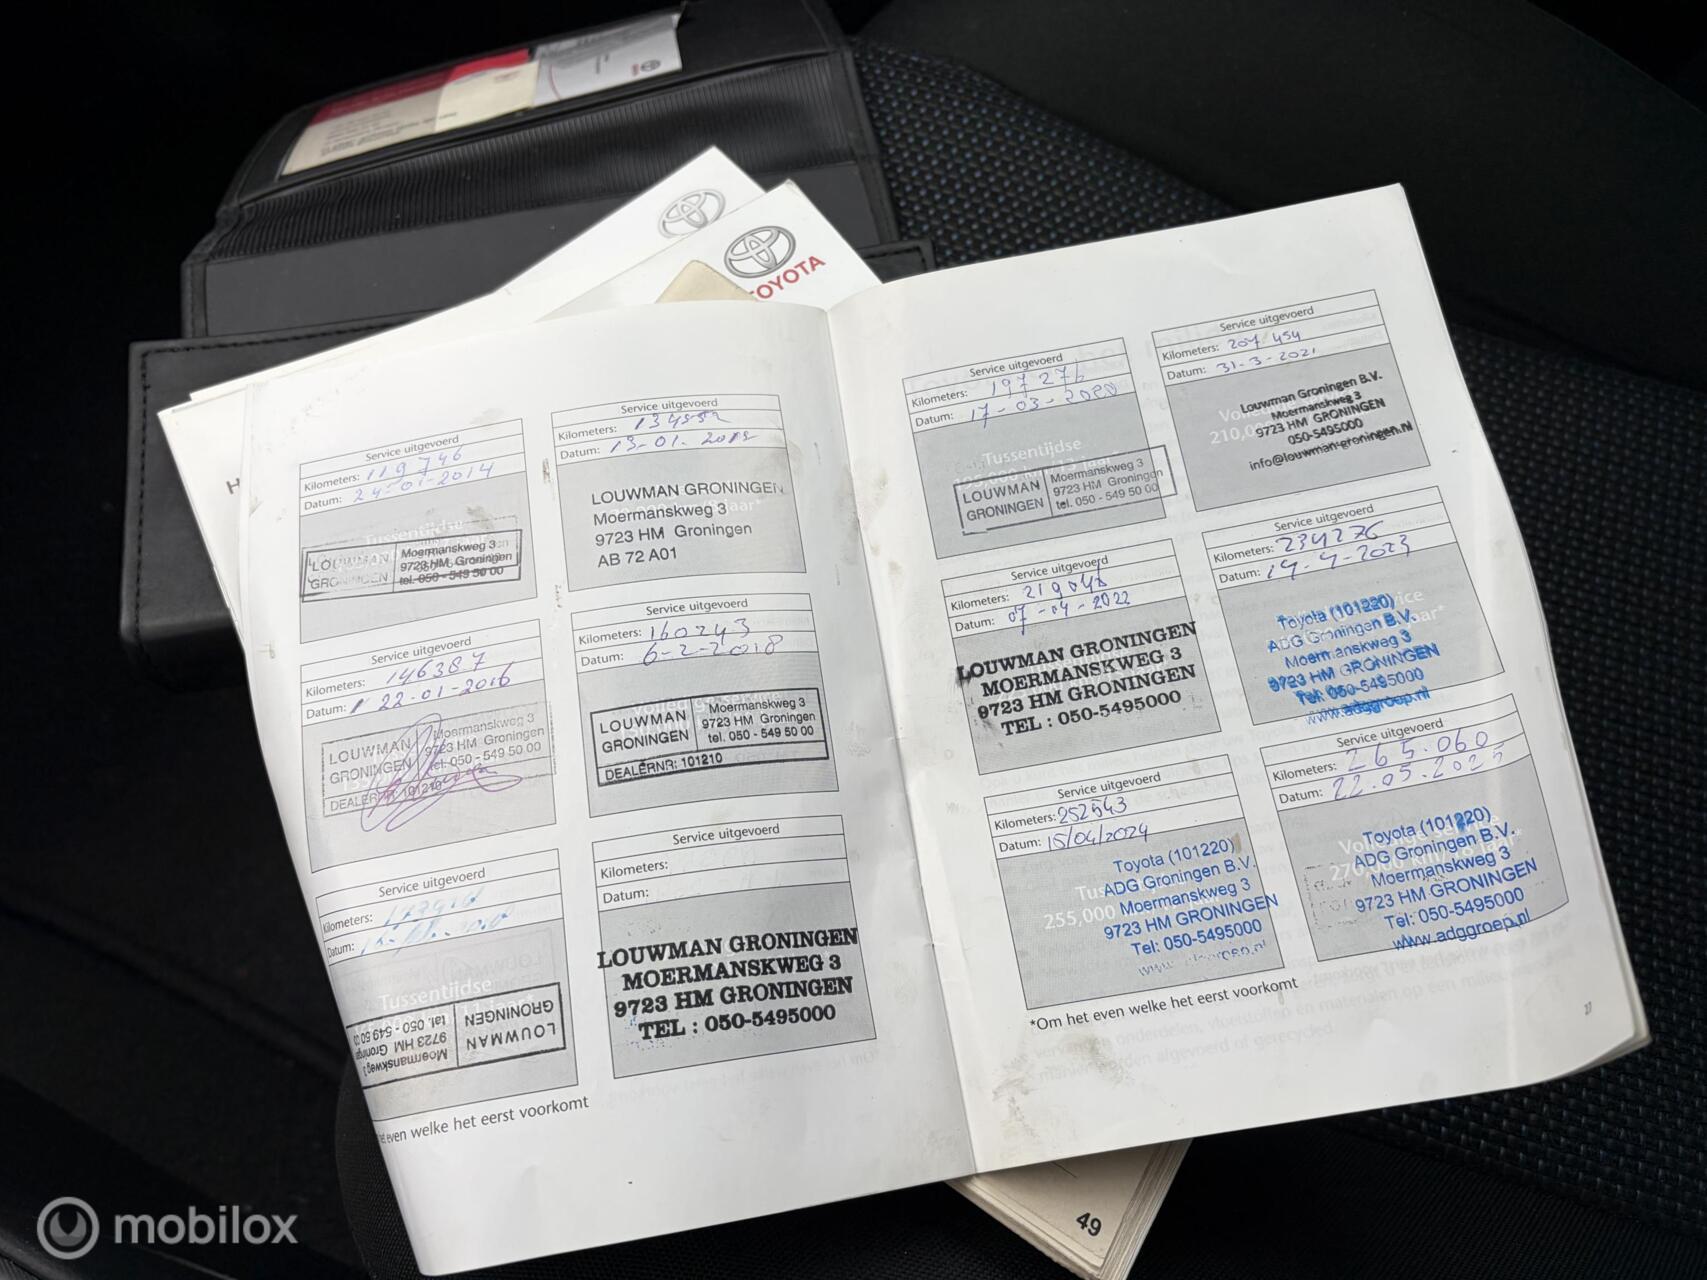 TOYOTA
Service uitgevoerd
Kilometers: 119746
Datum: 24-01-2014
Tussentijdse
LOUWMAN
GRONINGEN
Moermanskweg 3
9723 HM Groningen
tel. 050 - 549 50 00
Service uitgevoerd
Kilometers:
Datum: 13-01-
LOUWMAN GRONINGEN
Moermanskweg 3
9723 HM Groningen
AB 72 A01
Service uitgevoerd
Kilometers: 146387
Datum: 22-01-2016
LOUWMAN
GRONINGEN
Moermanskweg 3
9723 HM Groningen
tel. 050 - 549 50 00
DEALERNR: 101210
Service uitgevoerd
Kilometers: 160243
Datum: 6-2-2018
LOUWMAN
GRONINGEN
Moermanskweg 3
9723 HM Groningen
tel. 050 - 549 50 00
DEALERNR: 101210
Service uitgevoerd
Kilometers:
Datum:
Tussentijdse
LOUWMAN
GRONINGEN
Moermanskweg 3
9723 HM Groningen
tel. 050 - 549 50 00
Service uitgevoerd
Kilometers:
Datum:
LOUWMAN GRONINGEN
MOERMANSKWEG 3
9723 HM GRONINGEN
TEL : 050-5495000
even welke het eerst voorkomt
Service uitgevoerd
Kilometers: 197276
Datum: 17-03-2020
Tussentijdse
LOUWMAN
GRONINGEN
Moermanskweg 3
9723 HM Groningen
tel. 050 - 549 50 00
Service uitgevoerd
Kilometers: 207 454
Datum: 31-3-2021
Louwman Groningen B.V.
Moermanskweg 3
9723 HM GRONINGEN
050-5495000
info@louwman-groningen.nl
Service uitgevoerd
Kilometers: 219048
Datum: 07-04-2022
LOUWMAN GRONINGEN
MOERMANSKWEG 3
9723 HM GRONINGEN
TEL : 050-5495000
Service uitgevoerd
Kilometers: 234276
Datum: 14-4-2023
Toyota (101220)
ADG Groningen B.V.
Moermanskweg 3
9723 HM GRONINGEN
Tel: 050-5495000
www.adggroep.nl
Service uitgevoerd
Kilometers: 252543
Datum: 15/04/2024
255,000
Toyota (101220)
ADG Groningen B.V.
Moermanskweg 3
9723 HM GRONINGEN
Tel: 050-5495000
Service uitgevoerd
Kilometers: 265.060
Datum: 22.05.2025
Toyota (101220)
ADG Groningen B.V.
Moermanskweg 3
9723 HM GRONINGEN
Tel: 050-5495000
www.adggroep.nl
*Om het even welke het eerst voorkomt
49
mobilox